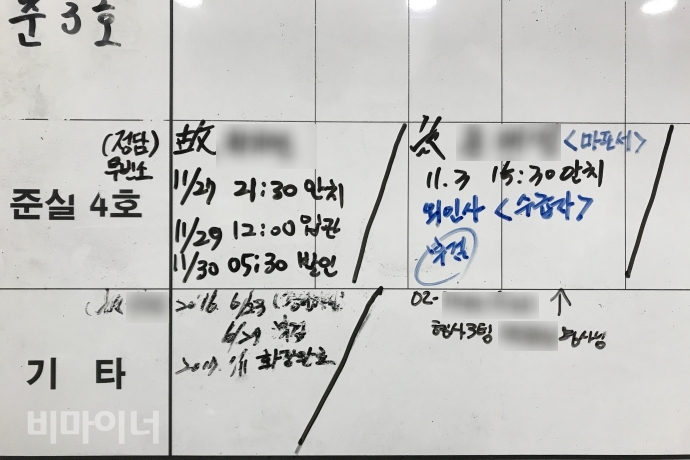 준 3 호
(정담)
무빈소
준실 4호
故
11/27 21:30 안치
11/29 12:00 입관
11/30 05:30 발인
<마포서>
11.3 15:30 안치
외인사 <수급자>
부검
기 타
2016. 6/23
6/29 부검
화장완료
02-
형사3팀 형사님
비마이너